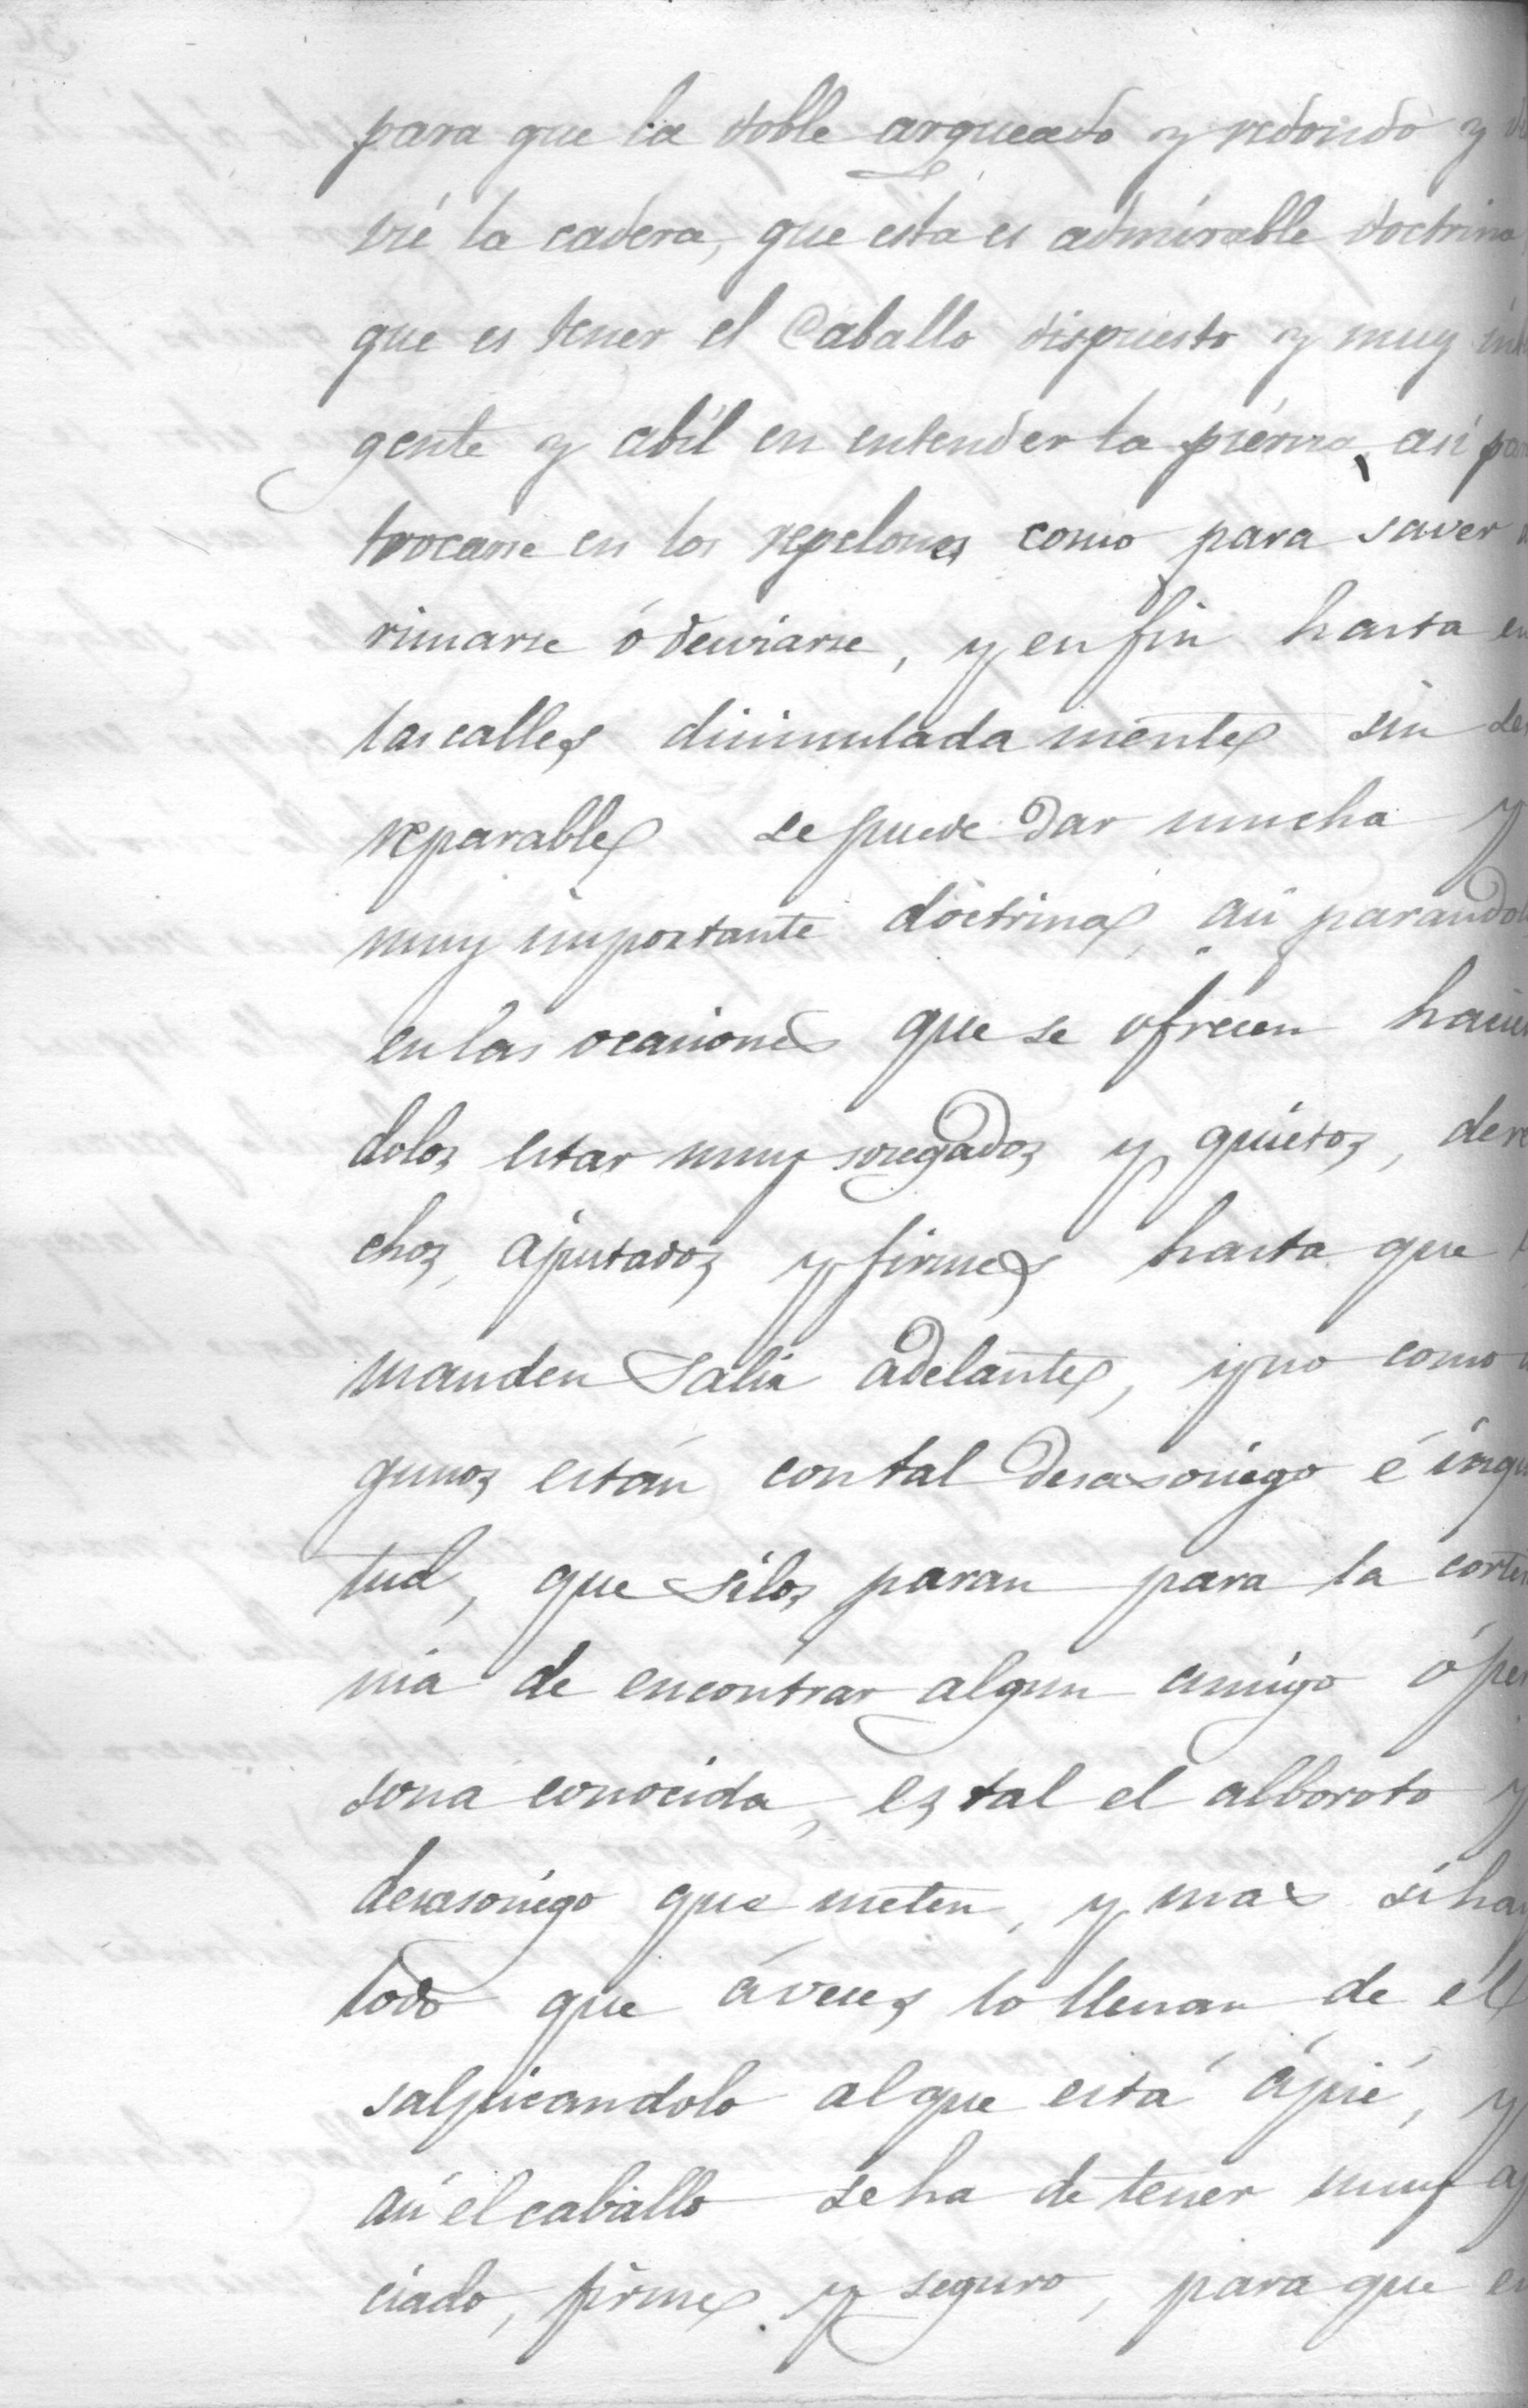 para que la doble arqueado y redondo y de
vié la cadera, que esta es admirable doctrina
que es tener el Caballo dispuesto y muy int
gente y abil en entender la pierna, asi par
trocarse en los repelones como para saver
rimarse ó desviarse, y en fin hasta en
las calles disimulada mente sin se
reparable se puede dar mucha y
muy importante doctrina, asi parandol
en las ocasiones que se ofrecen hacien
dolos estar muy sosegados y quietos, dere
chos, ajustados y firmes hasta que
manden salir adelante, y no como
gunos están con tal desasosiego é inqu
tud, que si los paran para la cortes
nia de encontrar algun amigo ó per
sona conocida, es tal el alboroto y
desasosiego que meten, y mas si hay
lodo que áveces lo llenan de el
salpicandolo al que está ápié, y
asi el caballo se ha de tener muy
ciado, firme y seguro, para que en